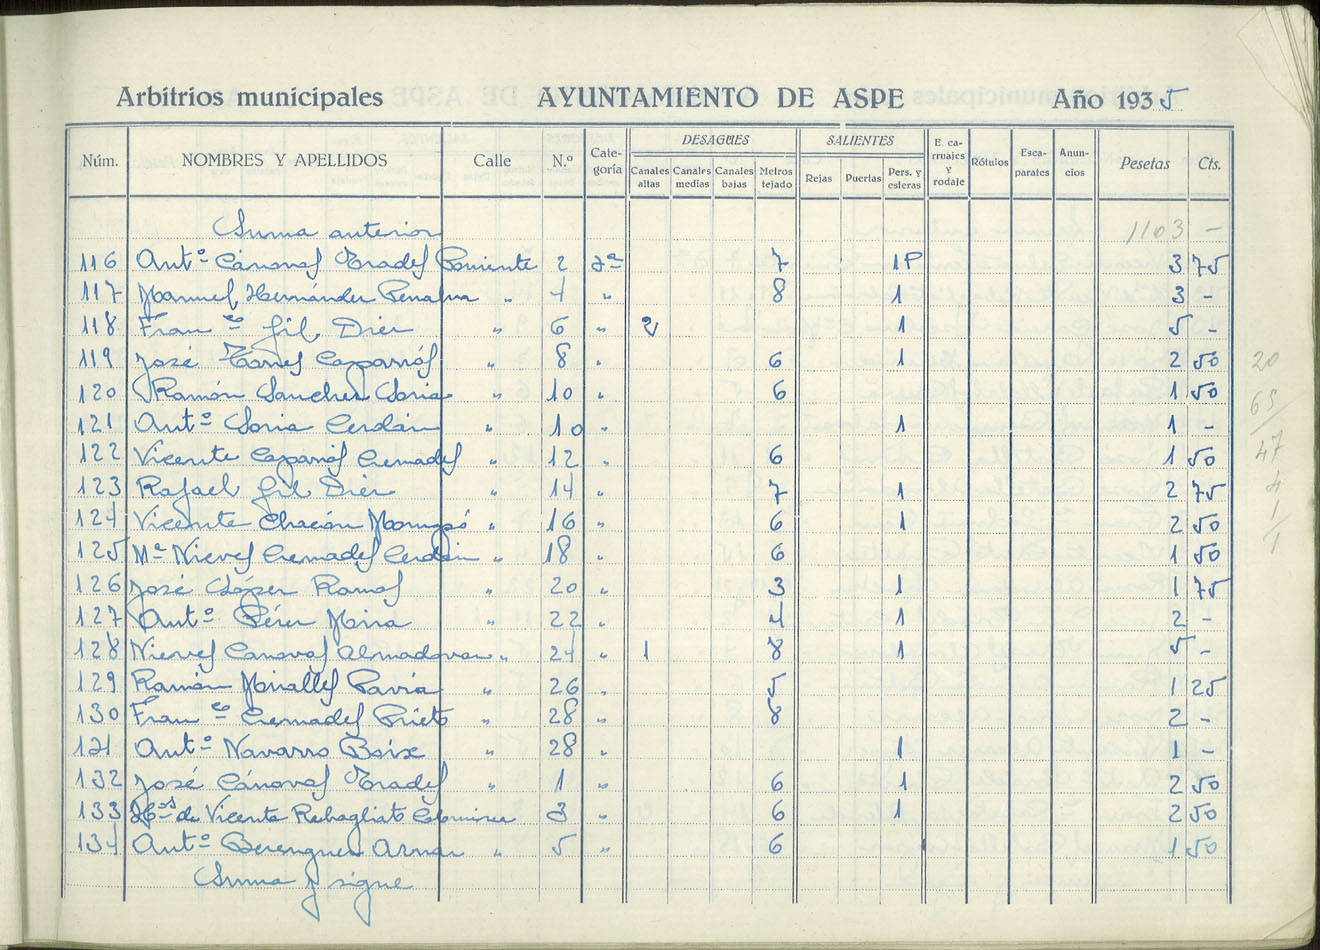 Arbitrios municipales AYUNTAMIENTO DE ASPE Año 1935
Núm. NOMBRES Y APELLIDOS Calle N.º Cate-goría DESAGÜES Canales altas Canales medias Canales bajas Metros tejado SALIENTES Rejas Puertas Pers. y esteras E. ca-rruajes y rodaje Rótulos Esca-parates Anun-cios Pesetas Cts.
Suma anterior 1103 -
116 Antº Cánovas Prades Poniente 2 2ª 7 1P 3 75
117 Manuel Hernández Penalva " 4 " 8 1 3 -
118 Franco Gil Díez " 6 " 2 1 5 -
119 José Torres Caparrós " 8 " 6 1 2 50
120 Ramón Sánchez Soria " 10 " 6 1 50
121 Antº Soria Cerdán " 10 " 1 1 -
122 Vicente Caparrós Cremades " 12 " 6 1 50
123 Rafael Gil Díez " 14 " 7 1 2 75
124 Vicente Chacón " 16 " 6 1 2 50
125 Mª Nieves Cremades Cerdán " 18 " 6 1 50
126 José López Ramos " 20 " 3 1 1 75
127 Antº Pérez Mira " 22 " 4 1 2 -
128 Nieves Canovas Almodovar " 24 " 1 8 1 5 -
129 Ramón Miralles Pavia " 26 " 5 1 25
130 Franco Cremades Prieto " 28 " 8 2 -
131 Antº Navarro Boix " 28 " 1 1 -
132 José Cánovas Prades " 1 " 6 1 2 50
133 Hos de Vicente Rebagliato " 3 " 6 1 2 50
134 Antº Berenguer Aznar " 5 " 6 1 50
Suma y sigue
20
65
47
4
1
1